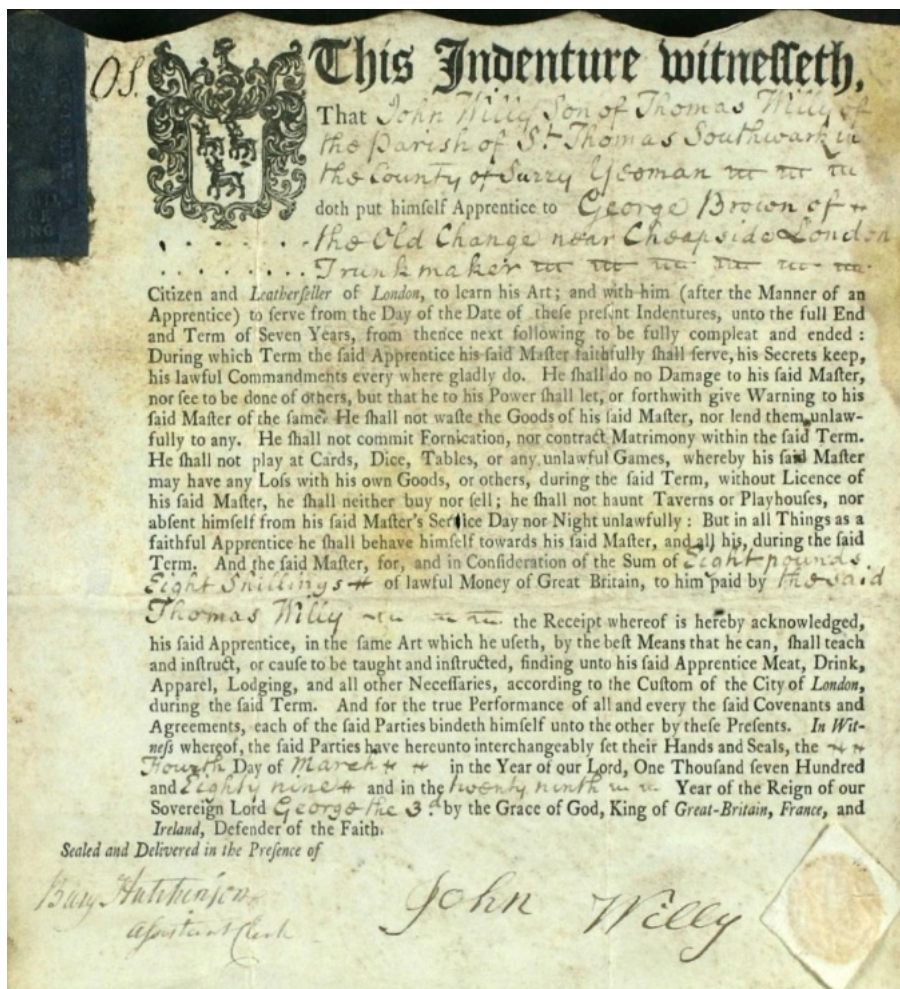 OS.
This Indenture witneſſeth,
That John Willy Son of Thomas Willy of
the Pariſh of St. Thomas Southwark in
the County of Surry Yeoman
doth put himſelf Apprentice to George Brown of
the Old Change near Cheapside London
Trunkmaker
Citizen and Leatherſeller of London, to learn his Art; and with him (after the Manner of an
Apprentice) to ſerve from the Day of the Date of theſe preſent Indentures, unto the full End
and Term of Seven Years, from thence next following to be fully compleat and ended :
During which Term the ſaid Apprentice his ſaid Maſter faithfully ſhall ſerve, his Secrets keep,
his lawful Commandments every where gladly do. He ſhall do no Damage to his ſaid Maſter,
nor ſee to be done of others, but that he to his Power ſhall let, or forthwith give Warning to his
ſaid Maſter of the ſame. He ſhall not waſte the Goods of his ſaid Maſter, nor lend them unlaw-
fully to any. He ſhall not commit Fornication, nor contract Matrimony within the ſaid Term.
He ſhall not play at Cards, Dice, Tables, or any unlawful Games, whereby his ſaid Maſter
may have any Loſs with his own Goods, or others, during the ſaid Term, without Licence of
his ſaid Maſter, he ſhall neither buy nor ſell; he ſhall not haunt Taverns or Playhouſes, nor
abſent himſelf from his ſaid Maſter's Service Day nor Night unlawfully : But in all Things as a
faithful Apprentice he ſhall behave himſelf towards his ſaid Maſter, and all his, during the ſaid
Term. And the ſaid Maſter, for, and in Conſideration of the Sum of Eight pounds
Eight Shillings of lawful Money of Great Britain, to him paid by the said
Thomas Willy the Receipt whereof is hereby acknowledged,
his ſaid Apprentice, in the ſame Art which he uſeth, by the beſt Means that he can, ſhall teach
and inſtruct, or cauſe to be taught and inſtructed, finding unto his ſaid Apprentice Meat, Drink,
Apparel, Lodging, and all other Neceſſaries, according to the Cuſtom of the City of London,
during the ſaid Term. And for the true Performance of all and every the ſaid Covenants and
Agreements, each of the ſaid Parties bindeth himſelf unto the other by theſe Preſents. In Wit-
neſs whereof, the ſaid Parties have hereunto interchangeably ſet their Hands and Seals, the
Fourth Day of March in the Year of our Lord, One Thouſand ſeven Hundred
and Eighty nine and in the twenty ninth Year of the Reign of our
Sovereign Lord George the 3d. by the Grace of God, King of Great-Britain, France, and
Ireland, Defender of the Faith.
Sealed and Delivered in the Preſence of
Hutchinson
Aſsistant Clerk
John Willy